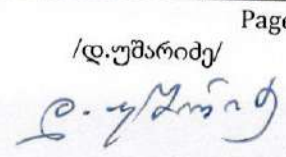 Page
/დ.უშარიძე/